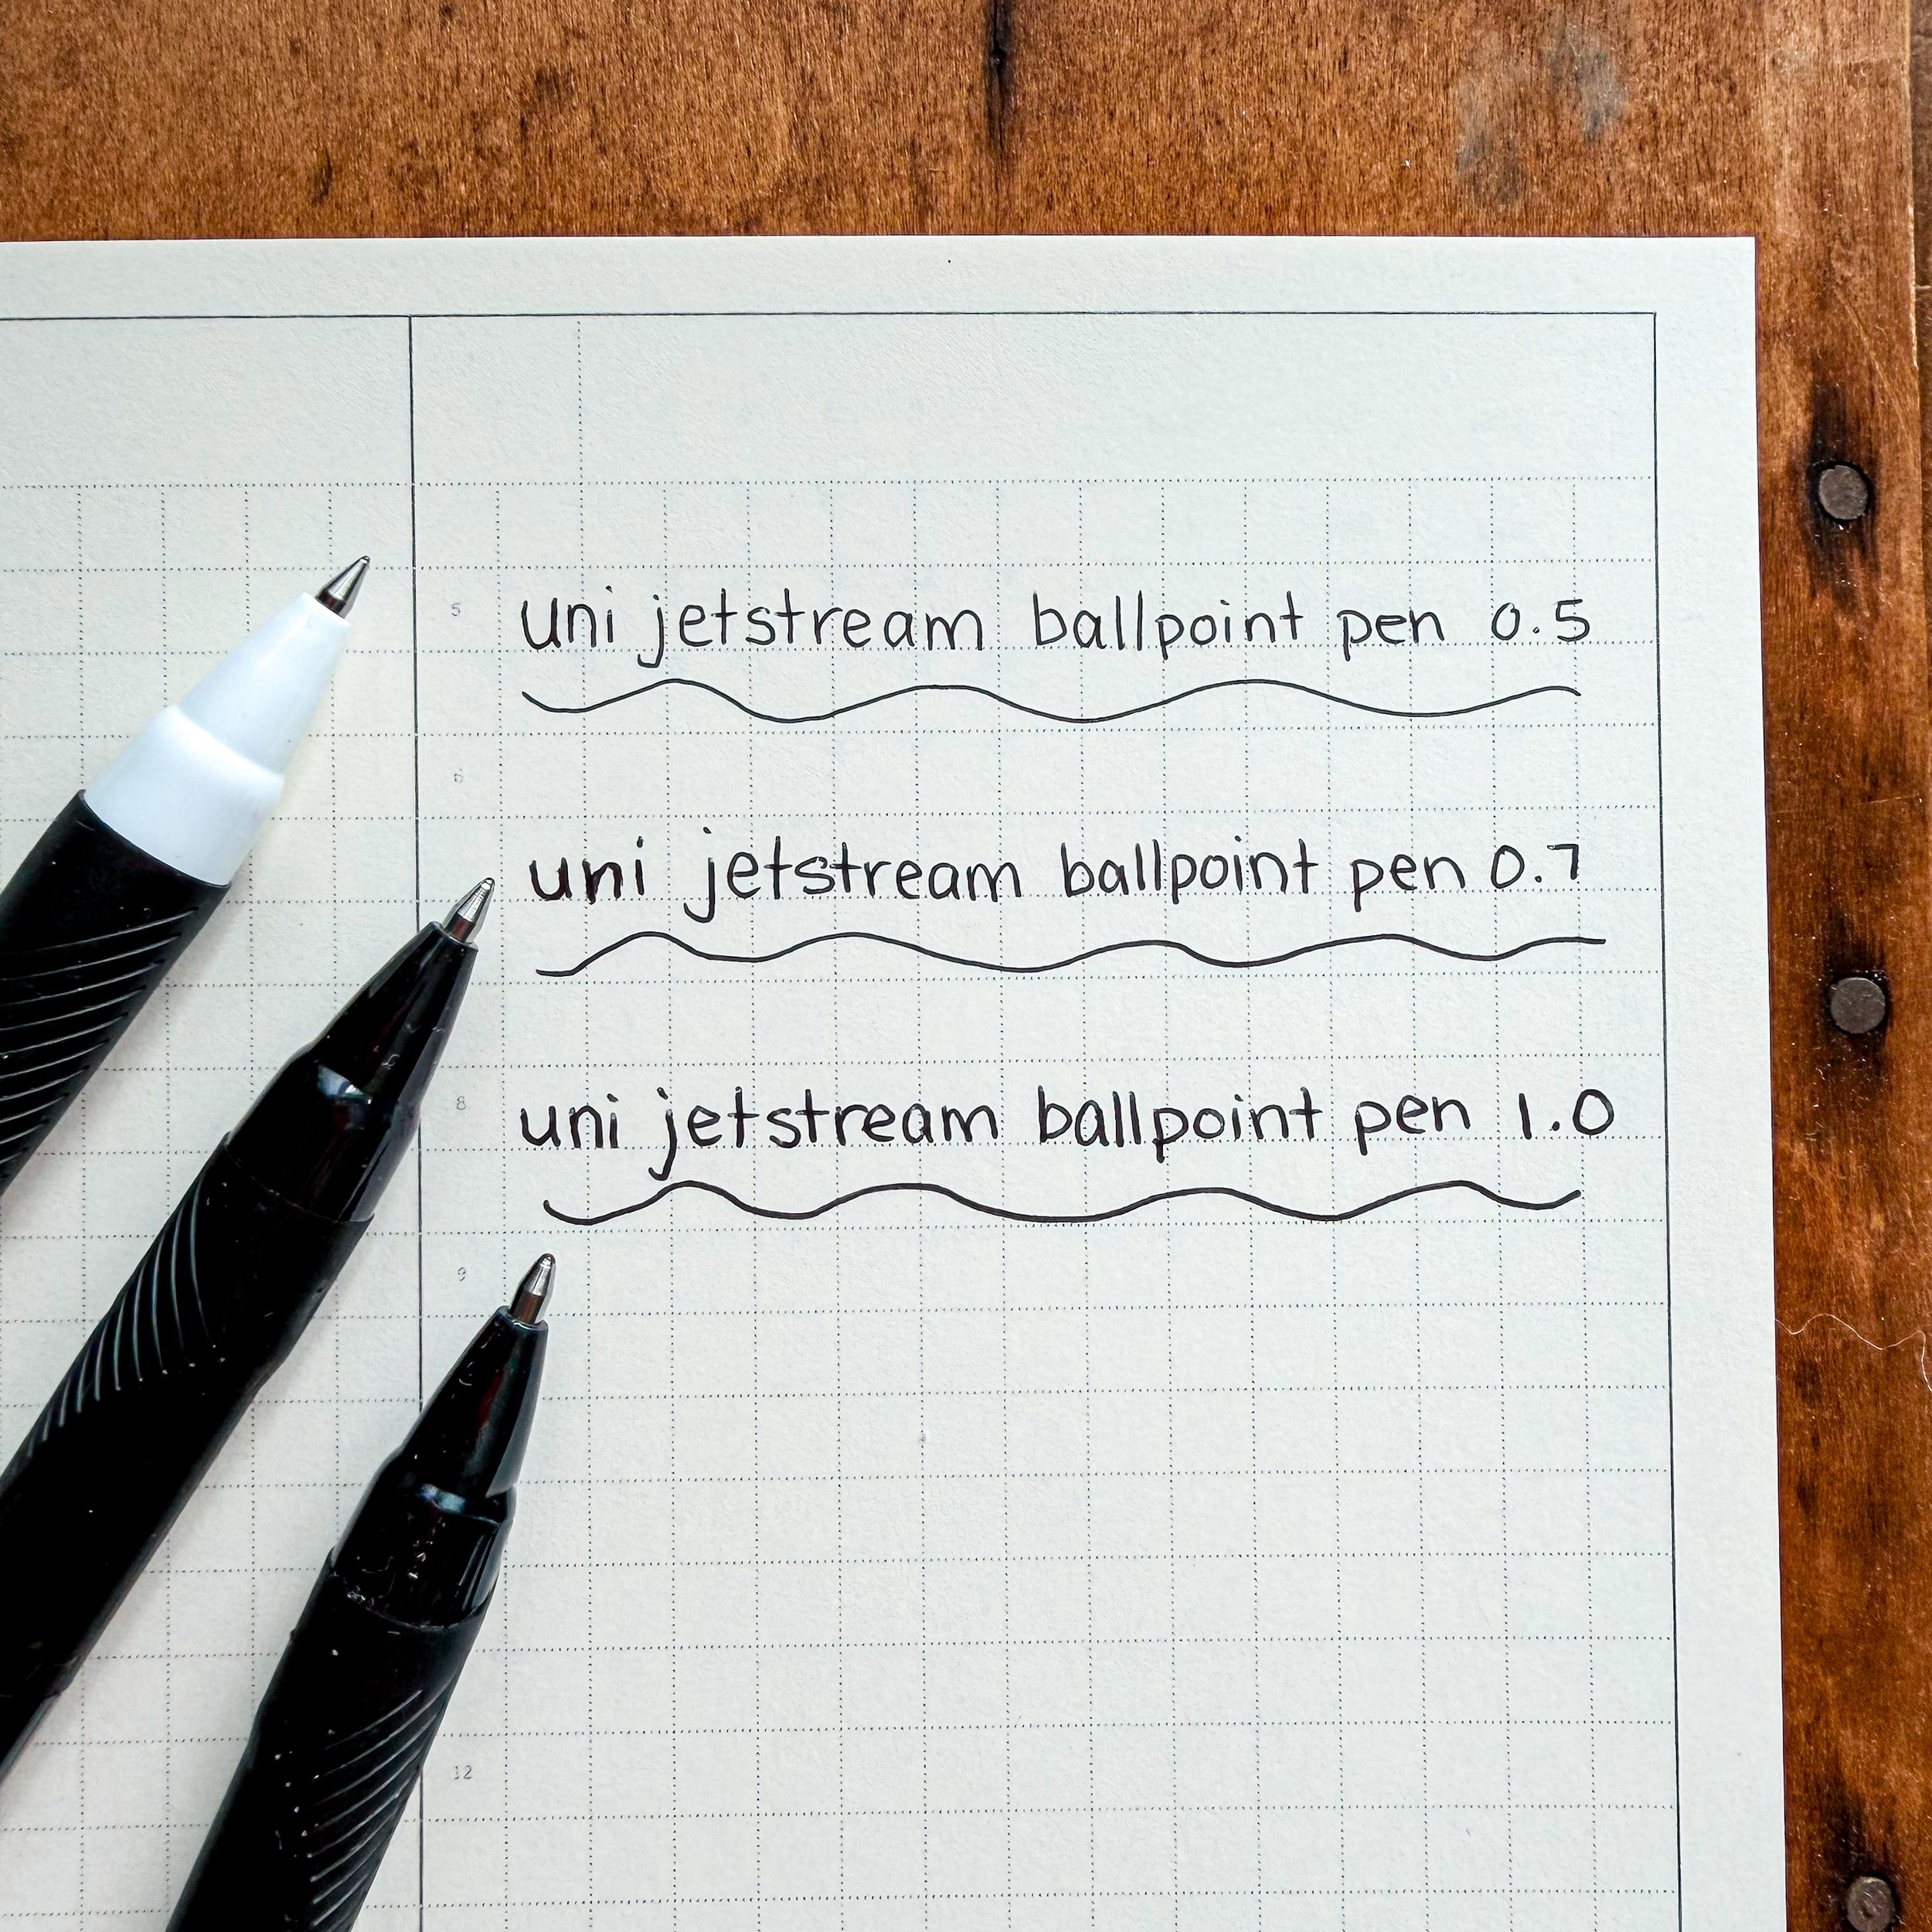 5
uni jetstream ballpoint pen 0.5
6
uni jetstream ballpoint pen 0.7
8
uni jetstream ballpoint pen 1.0
9
12